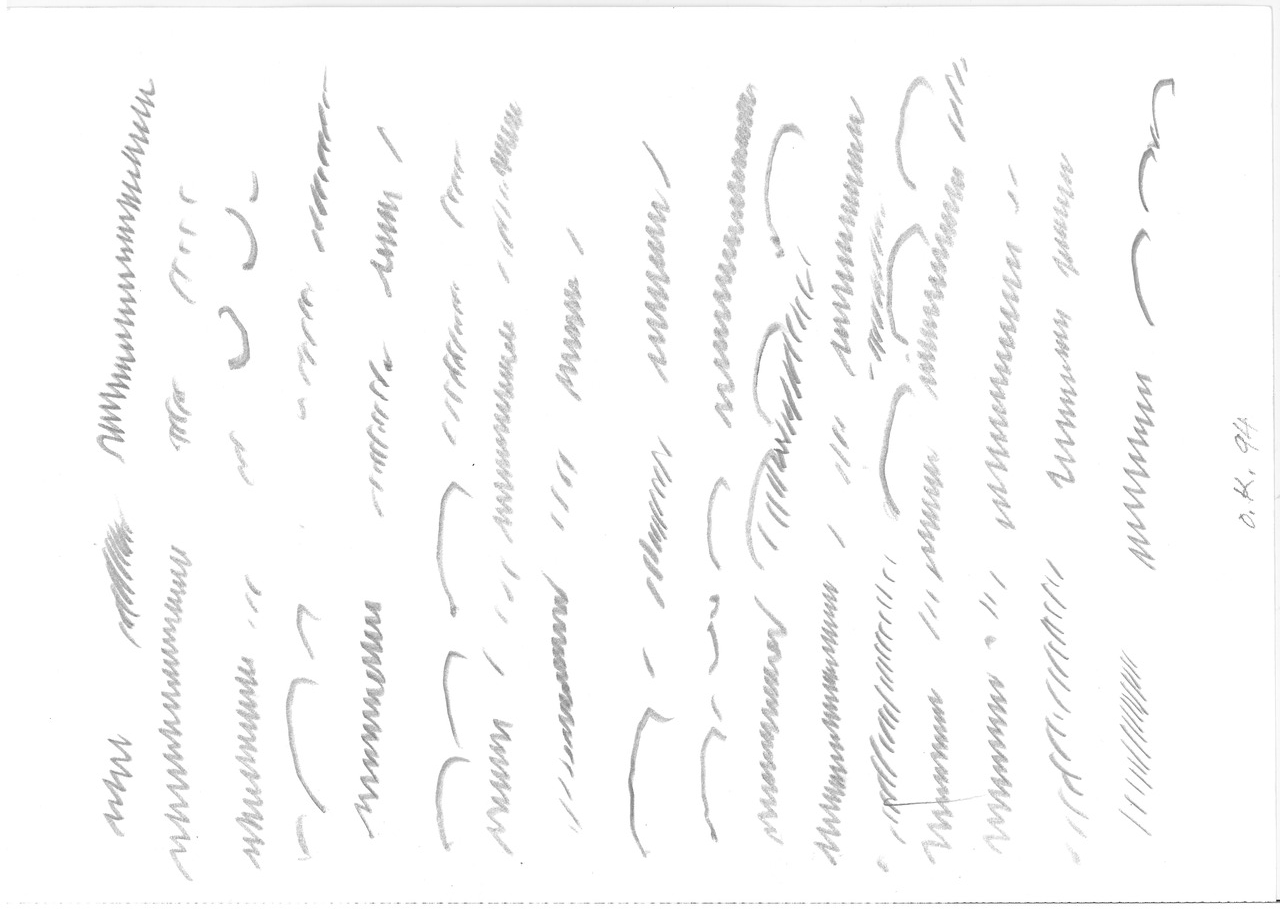 O.K. 94